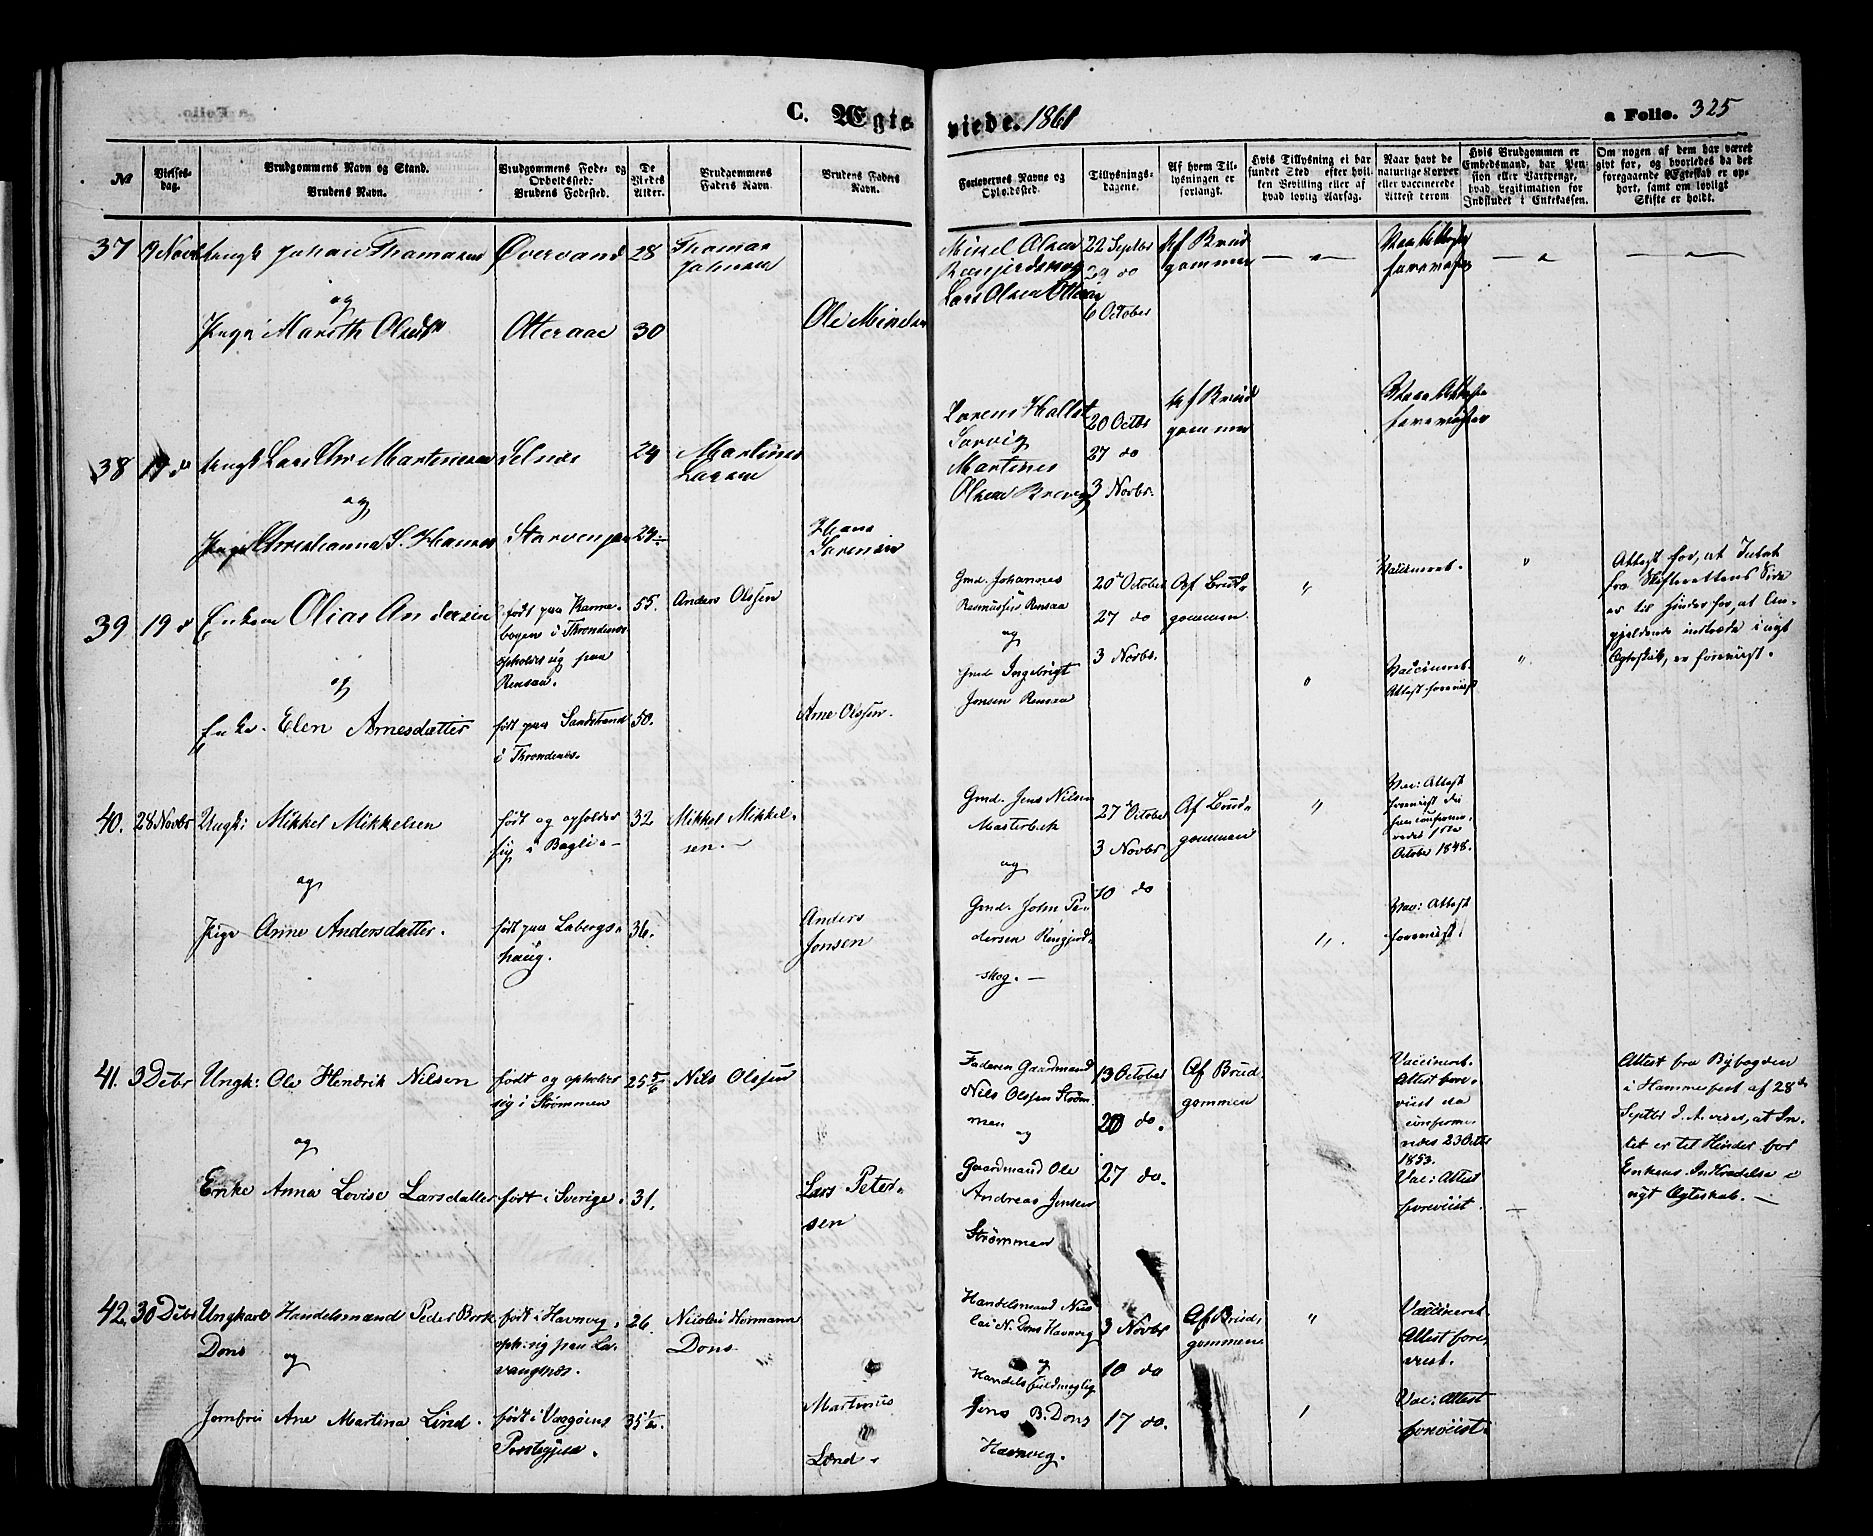 C. Ægteviede. 1861
a Folio. 325
No
Vielses-
dag.
Brudgommens Navn og Stand.
Brudens Navn.
Brudgommens Føde- og
Opholdssted.
Brudens Fødested.
De
Viedes
Alder.
Brudgommens
Faders Navn.
Brudens Faders
Navn.
Forlovernes Navne og
Opholdssted.
Tillysnings-
dagene.
Af hvem Til-
lysningen er
forlangt.
Hvis Tillysning ei har
fundet Sted, efter hvil-
ken Bevilling eller af
hvad lovlig Aarsag.
Naar havt de
naturlige Kopper
eller vaccinerede
Attest derom
Hvis Brudgommen er
Embedsmand, har Pen-
sion eller Vartpenge,
hvad Legitimation for
Indskudet i Enkekassen.
Om nogen af dem har været
gift før, og hvorledes da det
foregaaende Ægteskab er op-
hørt, samt om lovligt
Skifte er holdt.
37
Johan Thomasen
og
Pige Mareth Olsdtr
Øvervand
Otteraae
28
30
Thomas
Johnsen
Ole Mikelsen
Mikkel Olsen
Lars Olsen Otteraae
22 Septbr
29 do
6 October
Af Brud
gommen
38
19 do
Ungk Lars Chr Martinussen
og
Pige Christianna S. Hansen
Selnes
24
24
Martinus
Larsen
Hans
Sørensen
Lorens Hallst
Sørvig
Martines
Olsen Brevig
20 Octbr
27 do
3 Novbr.
Af Brud
gommen
39
19 d
Enkem Olias Andersen
og
Enke. Elen Arnesdatter
født paa Karne-
bogen i Throndenes
opholder sig paa
Rensaa.
født paa Sandstrand
i Throndenes.
55.
50.
Anders Olssen
Arne Olssen.
Gmd. Johannes
Rasmussen Rensaa
og
Gmd Ingebrigt
Jensen Rensaa
20 October
27 do
3 Novbr.
Af Brud-
gommen.
"
"
Vaccineret.
Vaccineret.
Attest forevist
"
"
Attest for, at Intet
fra Skifterettens Side
er til Hinder for, at An-
gjeldende indtræde i nyt
Ægteskab, er forevist.
40.
28 Novbr
Ungk: Mikkel Mikkelsen
og
Pige Anne Andersdatter.
født og opholder
sig i Bogli-
født paa Labergs-
haug.
32
36.
Mikkel Mikkel-
sen.-
Anders
Jonsen
Gmd. Jens Nilsen
Masterbak
og
Gmd. John Pe-
dersen Rengjerd-
skog.-
27 October
3 Novbr
10 do
Af Brud-
gommen
"
"
Vac: Attest
forevist da
han confirme-
redes 1ste
October 1848.
Vac: Attest
forevist.
41.
3 Decbr
Ungk: Ole Hendrik Nilsen
og
Enke Anna Lovise Larsdatter
født og opholder
sig i Strømmen
født i Sverige.
25 5/6
31.
Nils Olssen
Lars Peter-
sen
Faderen Gaardmand
Nils Olssen Strøm-
men og
Gaardmand Ole
Andreas Jensen
Strømmen
13 October
20 do.
27 do.
Af Brud-
gommen
Vaccineret.
Attest fore-
viist da
confirme-
redes 23 Octbr
1853.
Vac: Attest
foreviist.
Attest fra Byfogden
i Hammerfest af 28de
Septbr d. A. viser, at In-
tet er til Hinder for
Enkens Indtrædelse i
nyt Ægteskab. -
42.
30 Decbr
Ungkarl Handelsmand Peder Bork
Dons
og
Jomfru Ane Martina Lind.
født i Havnvig.
oph. sig paa La-
vangnæs.
født i Vaagøens
Præstegjeld.
26.
35 1/2.
Nicolai Normann
Dons.
Martinus
Lind.
Handelsmand Nico-
lai N. Dons Havnvig
og
Handelsfuldmægtig
Jens B. Dons
Havnvig.
3 Novbr
10 do
17 do.
Af Brud-
gommen
"
Vaccineret.
Attest fore-
viist.
Vac: Attest
foreviist.